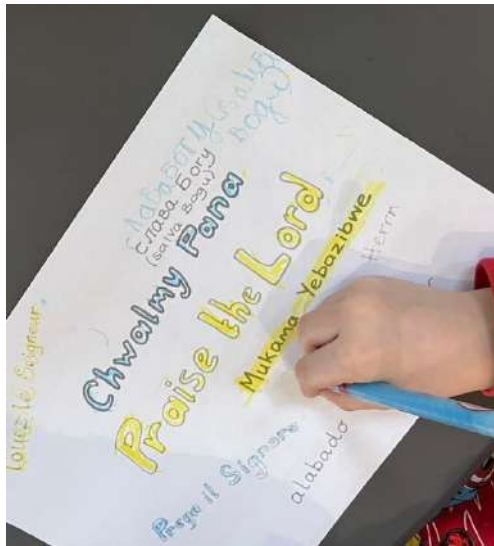 Слава Богу (Salva
Bogu)
Слава Богу
(salva Bogu)
Chwalmy Pana
Praise the Lord
Mukama Yebazibwe
Herrn
Louez le Seigneur.
Prega il Signore
alabado